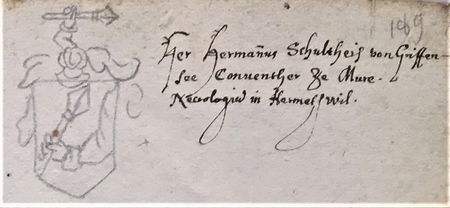 189
Her Hermanus Schultheis von Griffen
see Conventher Ze Mure.
Necrologiu in Hermetswil.